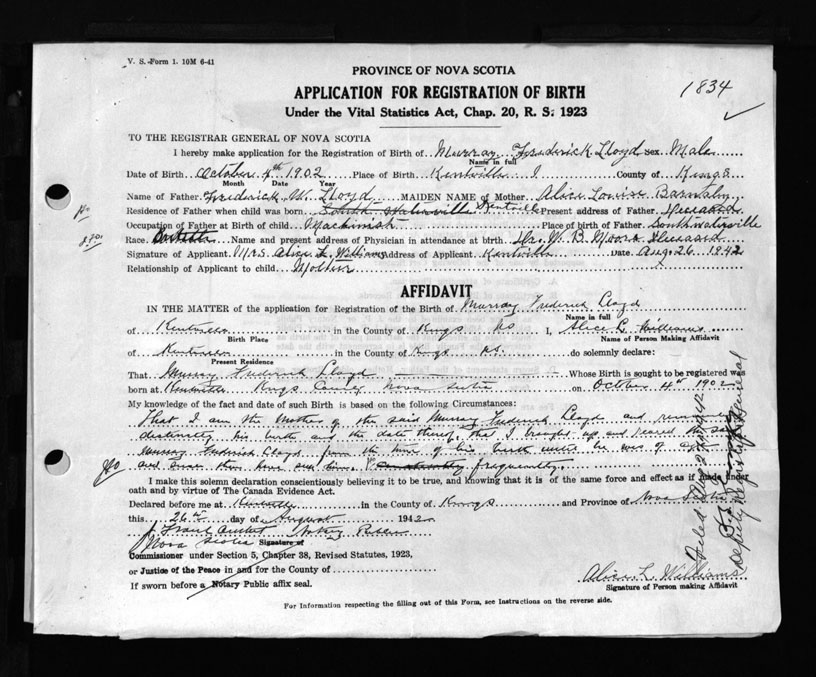 V. S.-Form 1. 10M 6-41
PROVINCE OF NOVA SCOTIA
APPLICATION FOR REGISTRATION OF BIRTH
Under the Vital Statistics Act, Chap. 20, R. S. 1923
1834
TO THE REGISTRAR GENERAL OF NOVA SCOTIA
I hereby make application for the Registration of Birth of Murray Frederick Lloyd sex Male
Name in full
Date of Birth October 4th 1902 Place of Birth Kentville County of Kings
Month Date Year
Name of Father Frederick W. Lloyd MAIDEN NAME of Mother Alice Louise
Residence of Father when child was born South Waterville Kentville Present address of Father Deceased
Occupation of Father at Birth of child Machinist Place of birth of Father South Waterville
Race Name and present address of Physician in attendance at birth Dr. W. B. Moore Deceased
Signature of Applicant Mrs. Alice L. Williams Address of Applicant Kentville Date Aug. 26 1942
Relationship of Applicant to child Mother
AFFIDAVIT
IN THE MATTER of the application for Registration of the Birth of Murray Frederick Lloyd
Name in full
of Kentville in the County of Kings NS. I, Alice L. Williams
Birth Place Name of Person Making Affidavit
of Kentville in the County of Kings NS. do solemnly declare:
Present Residence
That Murray Frederick Lloyd Whose Birth is sought to be registered was
born at Kentville Kings County Nova Scotia on October 4th 1902
My knowledge of the fact and date of such Birth is based on the following Circumstances:
That I am the Mother of the said Murray Frederick Lloyd and remember
distinctly his birth and the date thereof, that I brought up and reared the said
Murray Frederick Lloyd from the time of his birth until he was of age
and since then have seen him Constantly frequently.
I make this solemn declaration conscientiously believing it to be true, and knowing that it is of the same force and effect as if made under
oath and by virtue of The Canada Evidence Act.
Declared before me at Kentville in the County of Kings and Province of Nova Scotia
this 26th day of August 1942
Nova Scotia Signature of
Commissioner under Section 5, Chapter 38, Revised Statutes, 1923,
or Justice of the Peace in and for the County of
If sworn before a Notary Public affix seal.
Alice L. Williams
Signature of Person making Affidavit
For Information respecting the filling out of this Form, see Instructions on the reverse side.
Deputy Registrar General